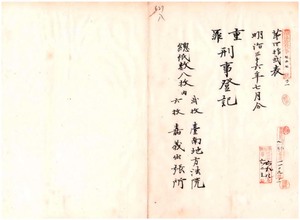 第四拾弐表
明治三十六年七月分
重罪
刑事登記
總紙数八枚内
弐枚 臺南地方法院
六枚 嘉義出張所